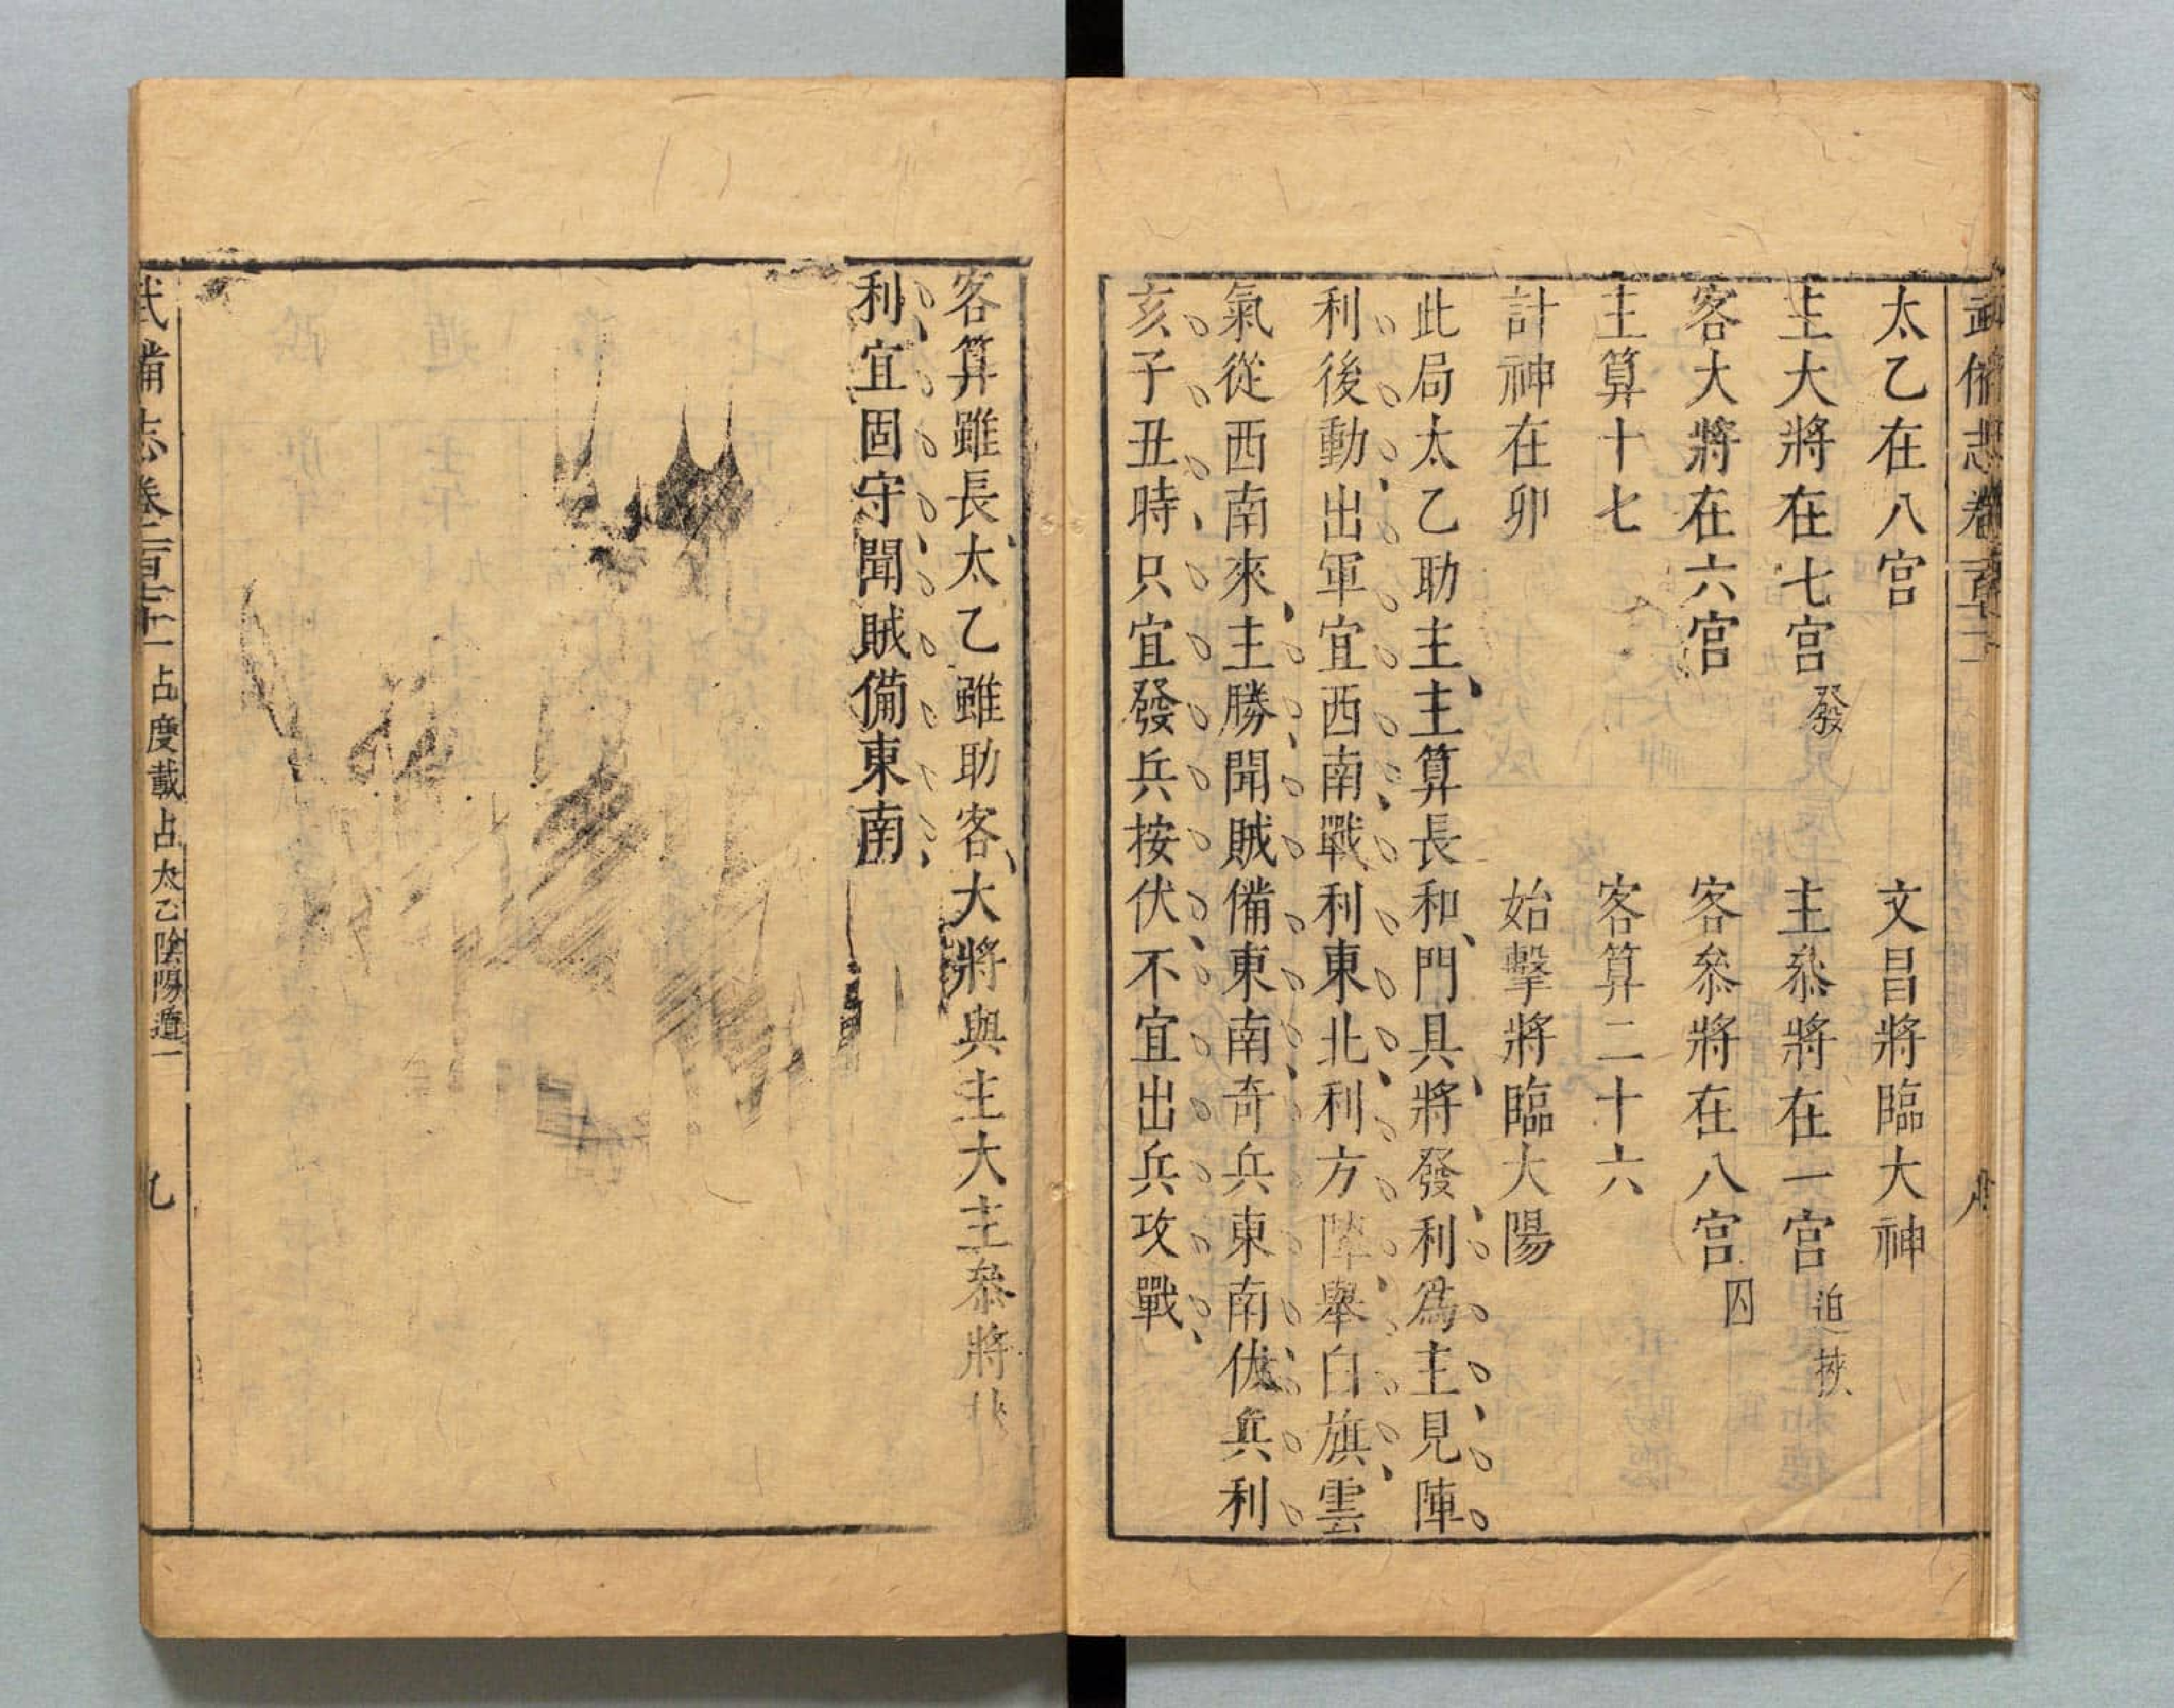 武備志卷
太乙在八宮　文昌將臨大神
主大將在七宮發　主叅將在一宮迫挾
客大將在六宮　客叅將在八宮囚
主算十七　客算二十六
計神在卯　始擊將臨大陽
此局太乙助主、主算長和、門具、將發、利為主、見陣
利後動、出軍宜西南、戰利東北、利方陣、舉白旗、雲
氣從西南來、主勝、聞賊備東南、奇兵東南、伏兵利
亥子丑時、只宜發兵按伏、不宜出兵攻戰、
客算雖長、太乙雖助客、大將與主大主叅將
利、宜固守、聞賊備東南、
武備志卷一百七十一 占度載 占 太乙陰陽遁一 九